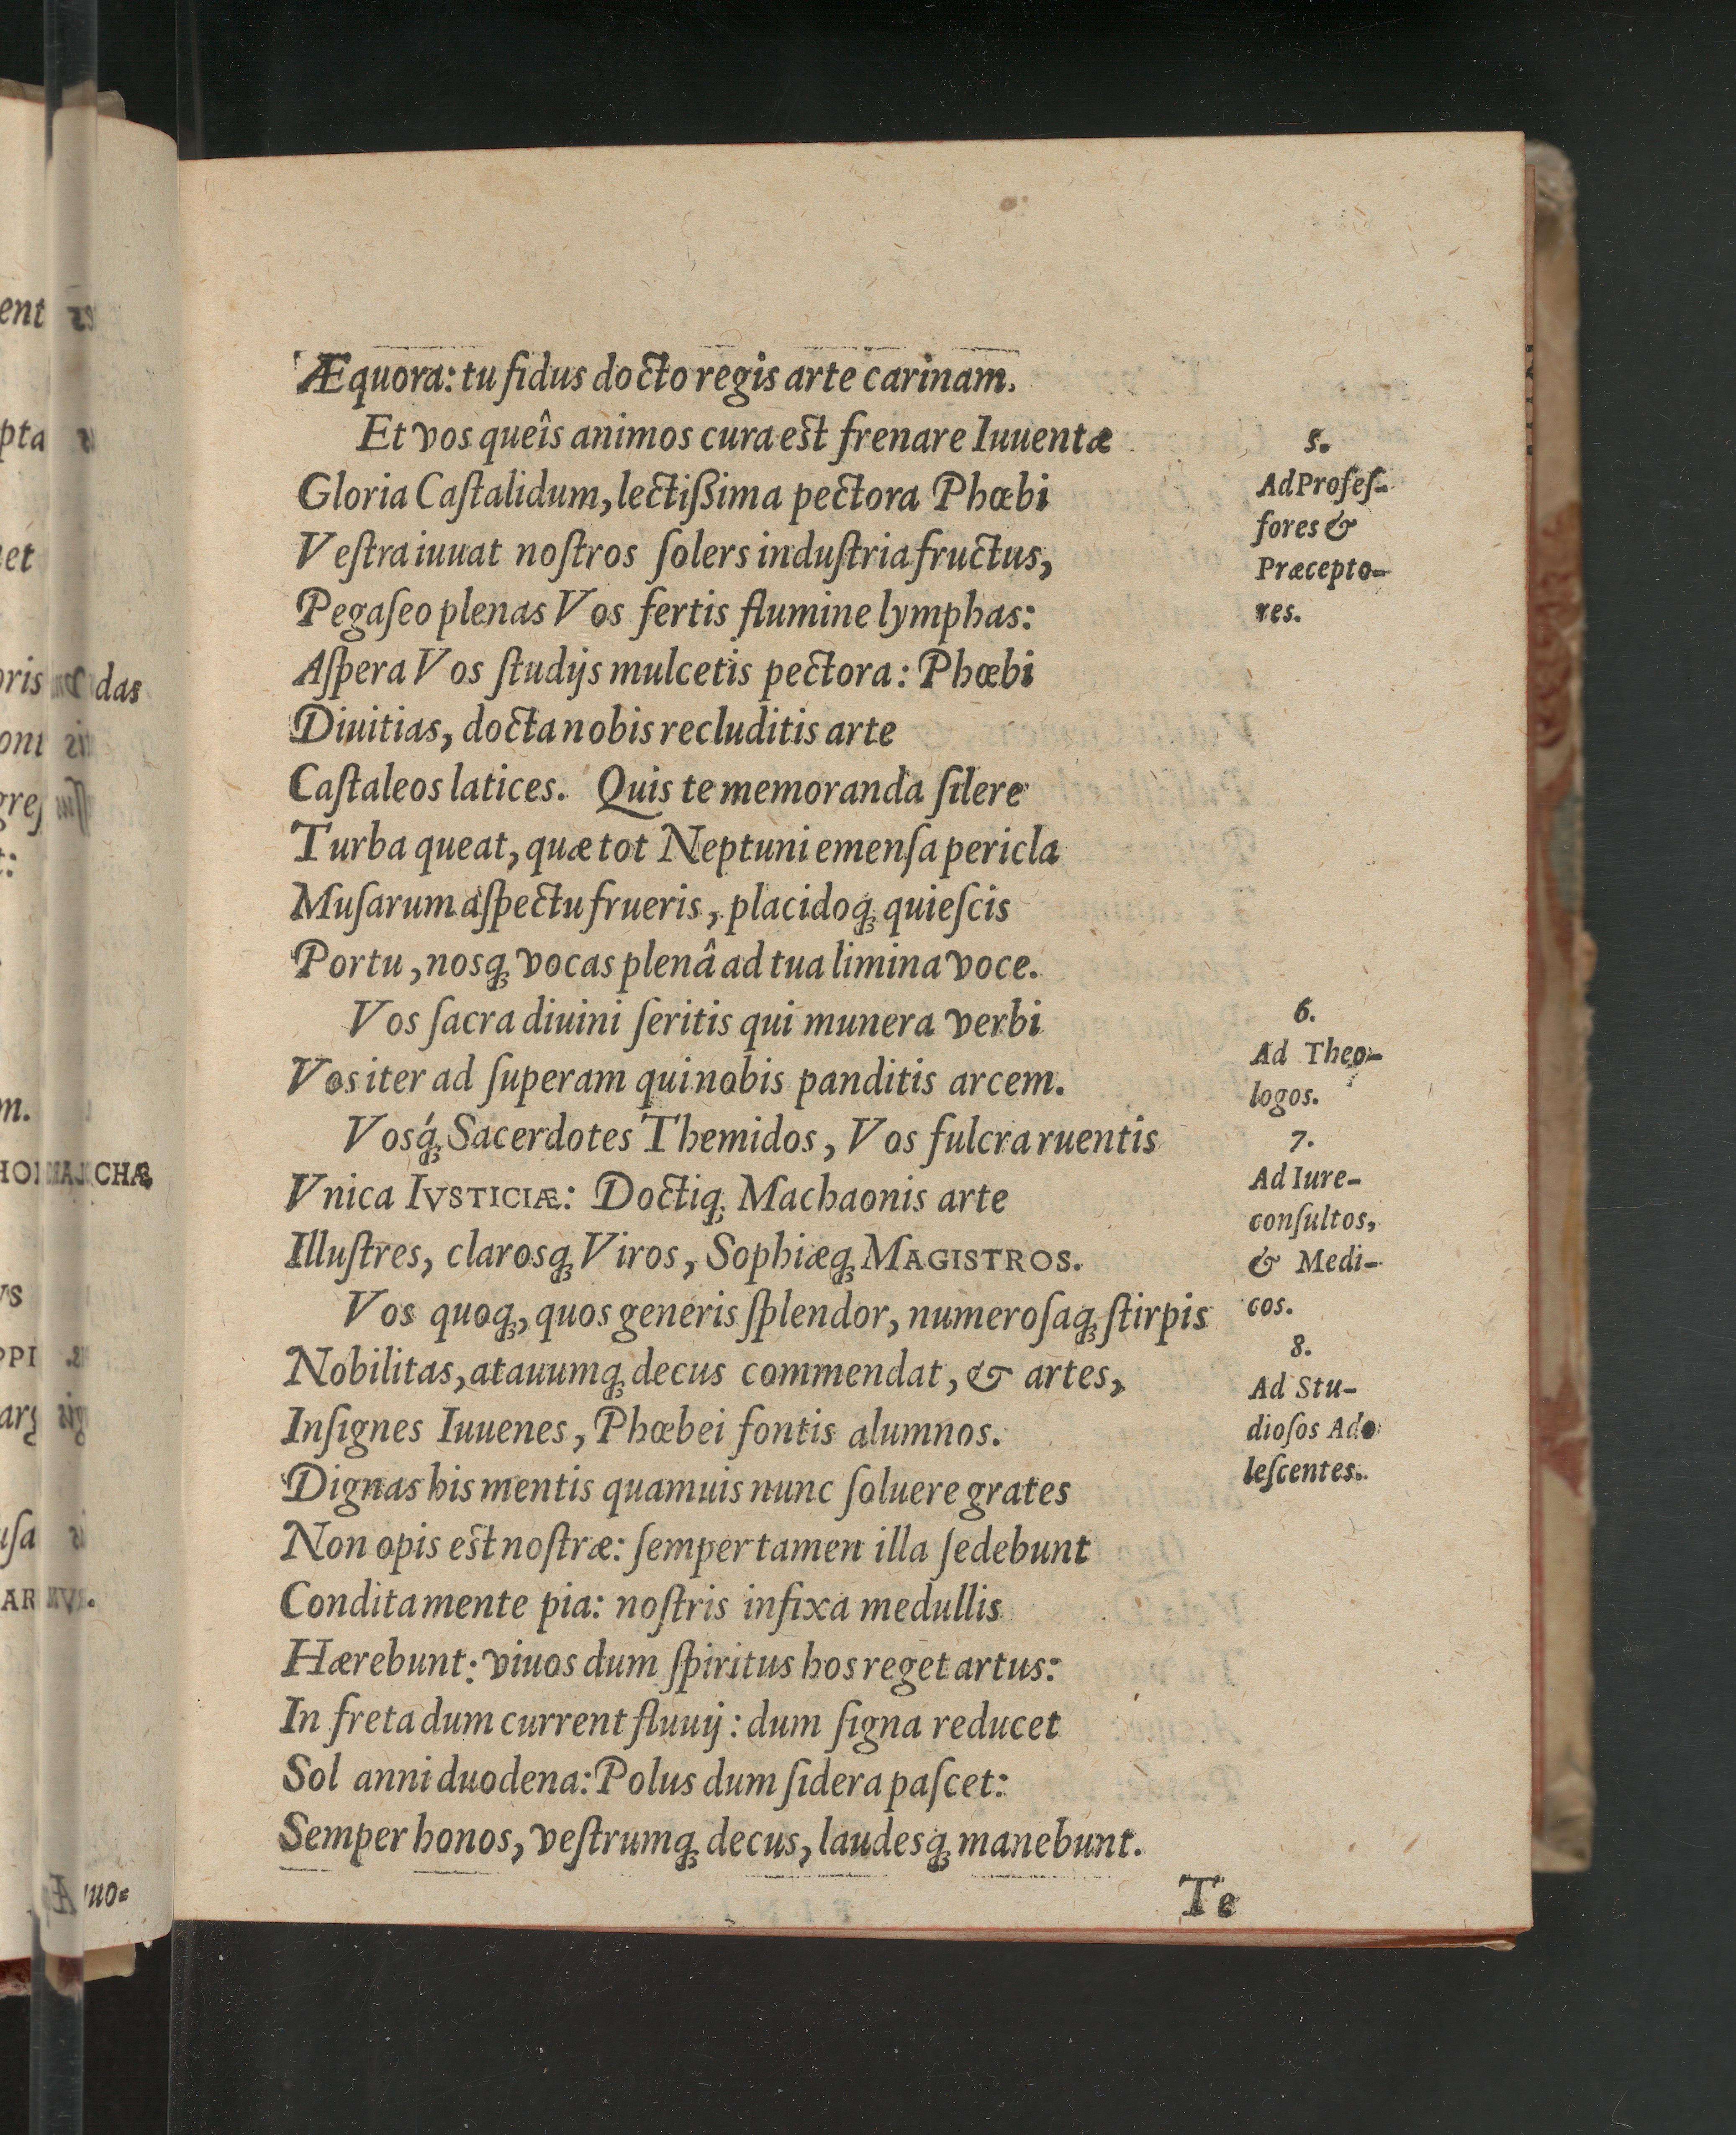 Æquora: tu fidus docto regis arte carinam.
Et vos queîs animos cura est frenare Iuuentæ
Gloria Caſtalidum, lectißima pectora Phœbi
Veſtra iuuat noſtros ſolers induſtria fructus,
Pegaſeo plenas Vos fertis flumine lymphas:
Aſpera Vos ſtudijs mulcetis pectora: Phœbi
Diuitias, docta nobis recluditis arte
Caſtaleos latices. Quis te memoranda ſilere
Turba queat, quæ tot Neptuni emenſa pericla
Muſarum aſpectu frueris, placidoq́ꝫ quieſcis
Portu, nosq́ꝫ vocas plenâ ad tua limina voce.
Vos ſacra diuini ſeritis qui munera verbi
Vos iter ad ſuperam qui nobis panditis arcem.
Vosq́ꝫ Sacerdotes Themidos, Vos fulcra ruentis
Vnica IVSTICIÆ: Doctiqꝫ Machaonis arte
Illuſtres, clarosqꝫ Viros, Sophiæqꝫ MAGISTROS.
Vos quoqꝫ, quos generis ſplendor, numeroſaqꝫ ſtirpis
Nobilitas, atauumqꝫ decus commendat, & artes,
Inſignes Iuuenes, Phœbei fontis alumnos.
Dignas his mentis quamuis nunc ſoluere grates
Non opis est noſtræ: ſemper tamen illa ſedebunt
Condita mente pia: noſtris infixa medullis
Hærebunt: viuos dum ſpiritus hos reget artus:
In freta dum current fluuij: dum ſigna reducet
Sol anni duodena: Polus dum ſidera paſcet:
Semper honos, veſtrumqꝫ decus, laudesqꝫ manebunt.
Te
5.
Ad Profeſ-
ſores &
Præcepto-
res.
6.
Ad Theo-
logos.
7.
Ad Iure-
conſultos,
& Medi-
cos.
8.
Ad Stu-
dioſos Ado
leſcentes.